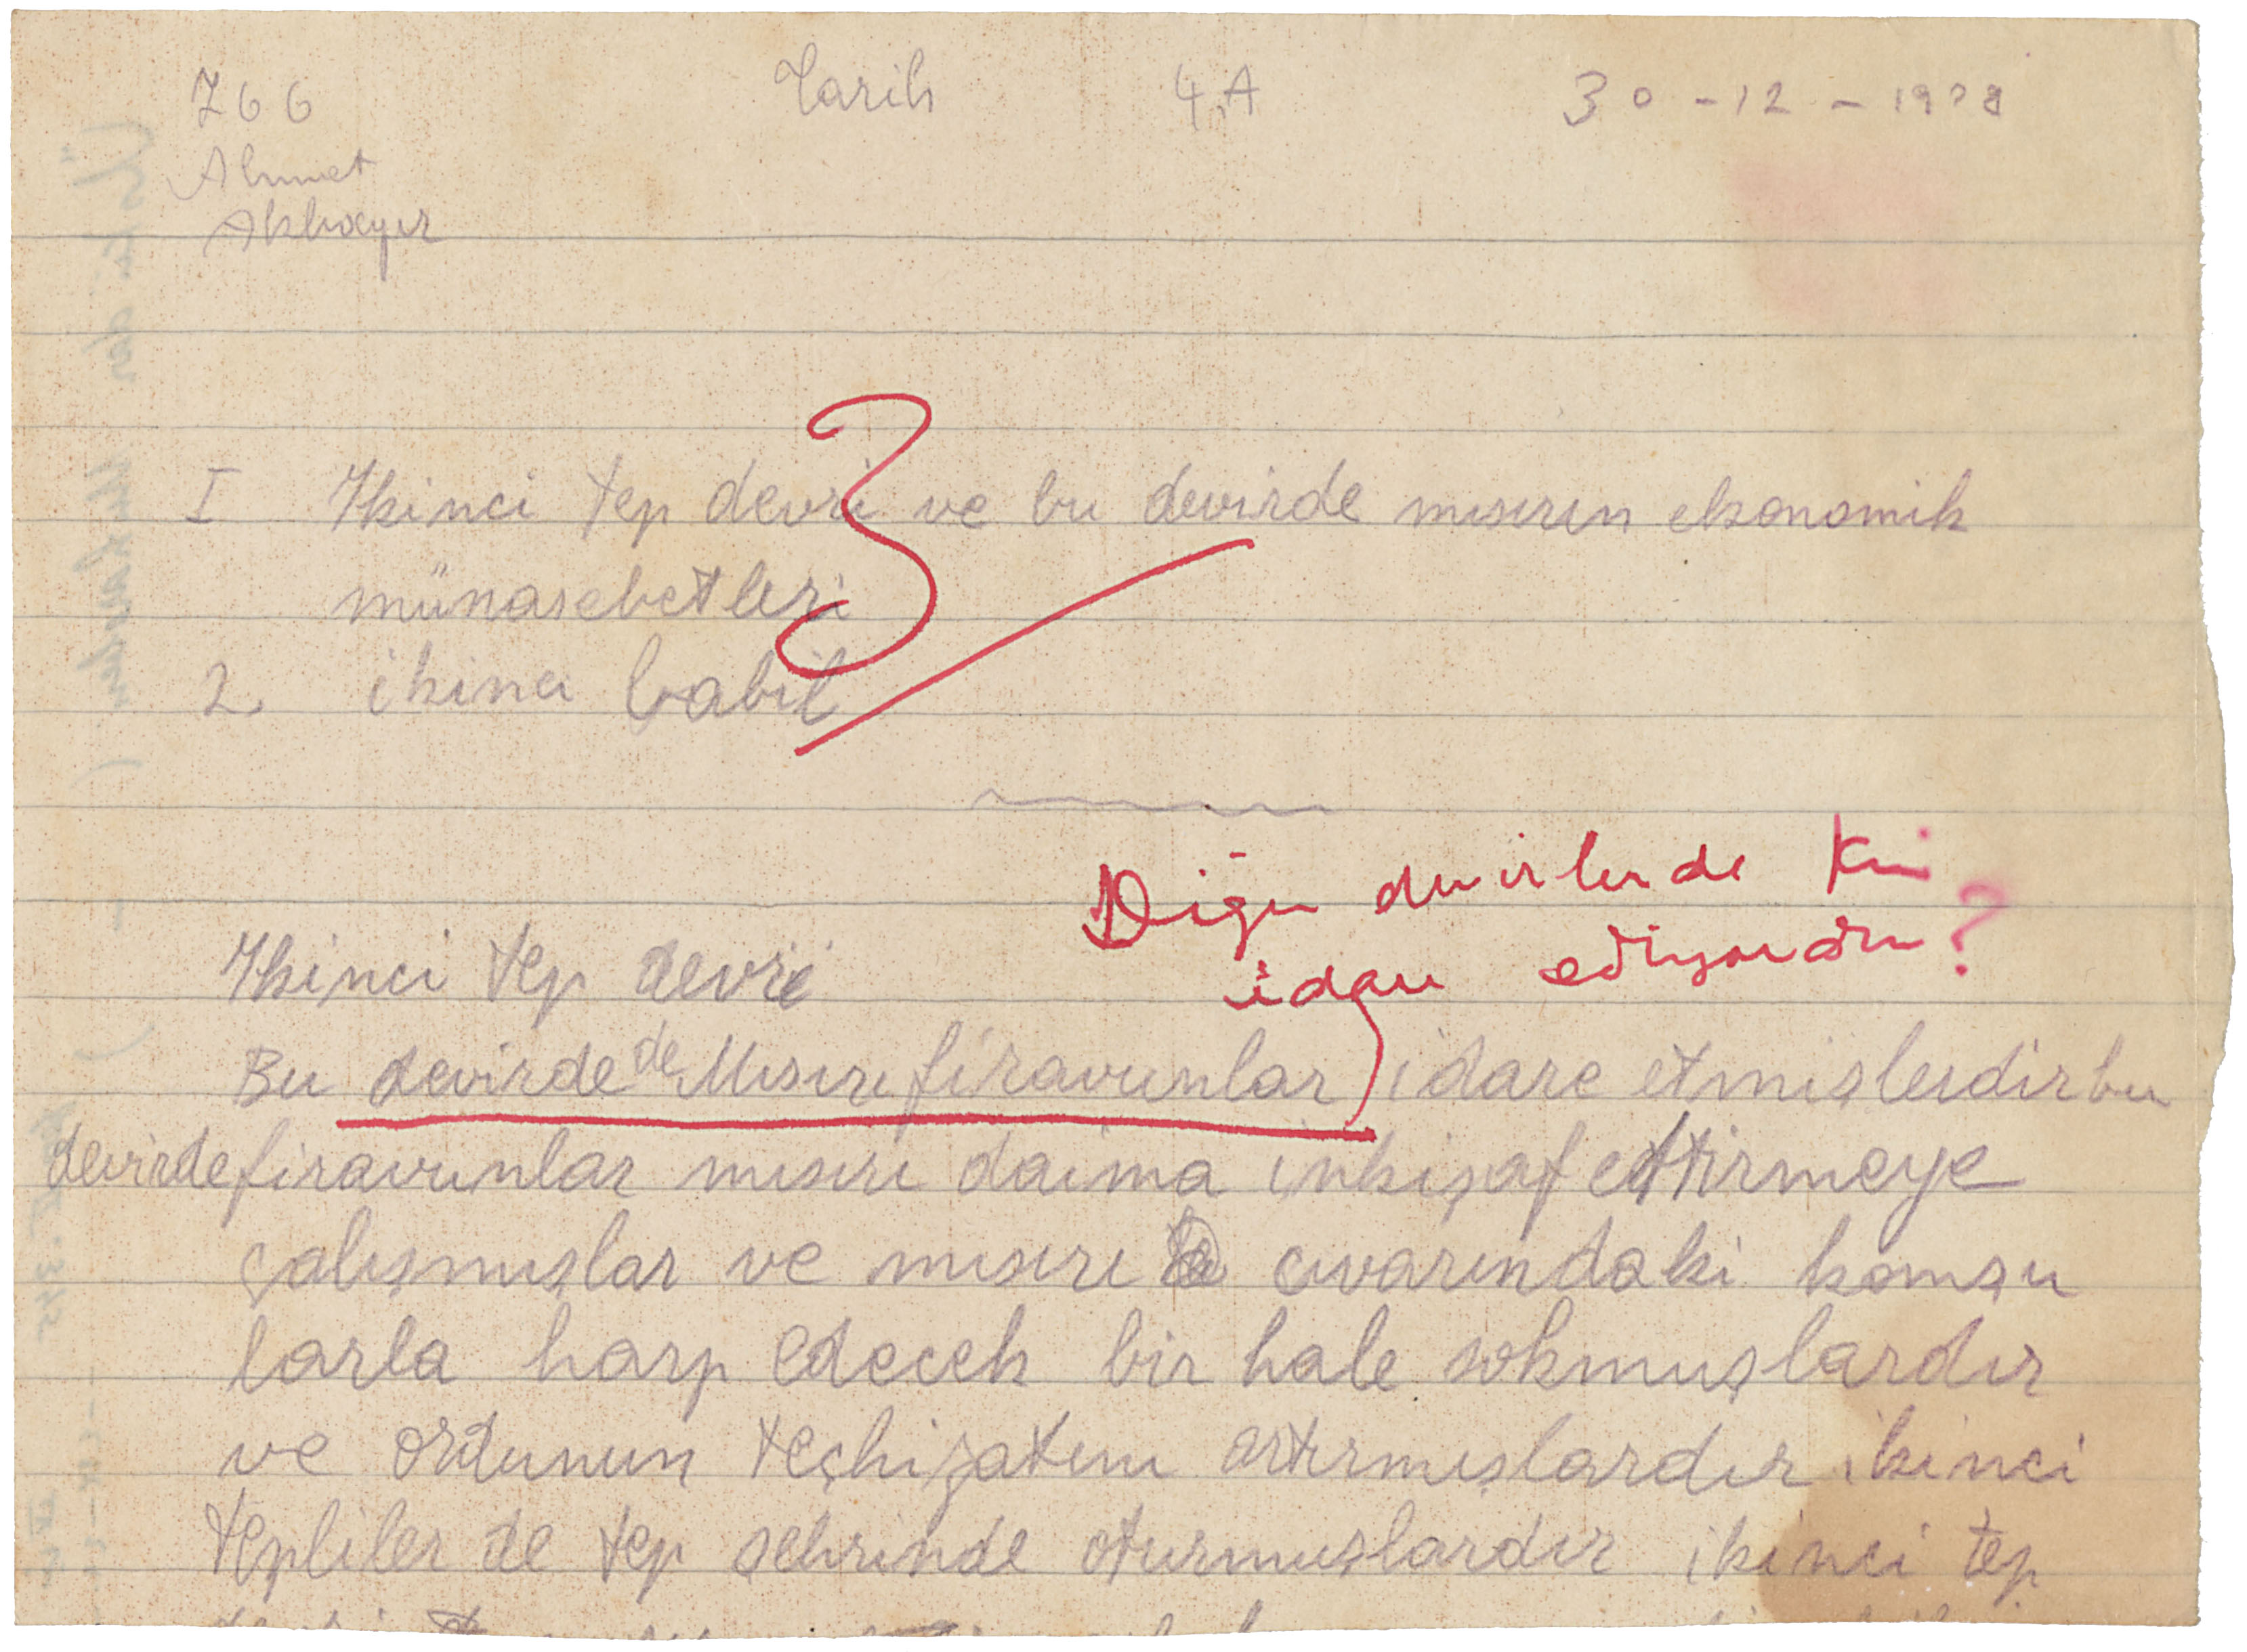 766 Tarih 4.A 30-12-1938
Ahmet
Akbayır
I Ikinci tep devri ve bu devirde mısırın ekonomik
münasebetleri
2. ikinci babil
3
Diğer devirlerde kim
idare ediyordu?
Ikinci tep devri
Bu devirde de Mısırı firavunlar idare etmişlerdir bu
devirde firavunlar mısırı daima inkişaf ettirmeye
çalışmışlar ve mısırı cıvarındaki komşu
larla harp edecek bir hale sokmuşlardır
ve ordunun teçhizatını artırmışlardır ikinci
tepliler de tep şehrinde oturmuşlardır ikinci tep